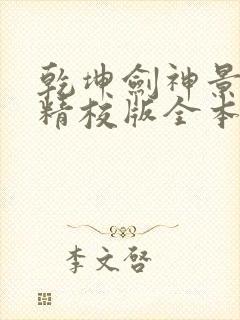 乾坤剑神景
精校版全本
李文启